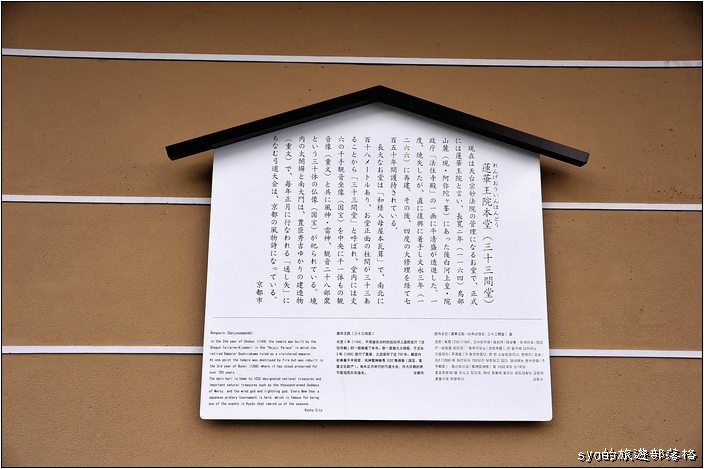 れんげおういんほんどう
蓮華王院本堂（三十三間堂）
現在は天台宗妙法院の管理になるお堂で、正式
には蓮華王院と言い、長寛二年（一一六四）鳥部
山麓（現・阿弥陀ヶ峯）にあった後白河上皇・院
政庁「法住寺殿」の一画に平清盛が造進した。一
度、焼失したが、直に復興に着手し文永三年（一
二六六）に再建、その後、四度の大修理を経て七
百五十年間護持されている。
長大なお堂は「和様入母屋本瓦葺」で、南北に
百十八メートルあり、お堂正面の柱間が三十三あ
ることから「三十三間堂」と呼ばれ、堂内には丈
六の千手観音坐像（国宝）を中央に千一体もの観
音像（重文）と共に風神・雷神、観音二十八部衆
という三十体の仏像（国宝）が祀られている。境
内の太閤塀と南大門は、豊臣秀吉ゆかりの建造物
（重文）で、毎年正月に行なわれる「通し矢」に
ちなむ弓道大会は、京都の風物詩になっている。
京都市
Rengeoin (Sanjusangendo)
In the 2nd year of Chokan (1164) the temple was built by the
Shogun Taira-no-Kiyomori in the "Hojuji Palace" in which the
retired Emperor Goshirakawa ruled as a cloistered emperor.
At one point the temple was destroyed by fire but was rebuilt in
the 3rd year of Bunei (1266) where it has stood preserved for
over 750 years.
The main hall is home to 1032 designated national treasures and
important natural treasures such as the thousand-armed Goddess
of Mercy, and the wind god and lightning god. Every New Year a
Japanese archery tournament is held, which is famous for being
one of the events in Kyoto that remind us of the seasons.
Kyoto City
syo的旅遊部落格